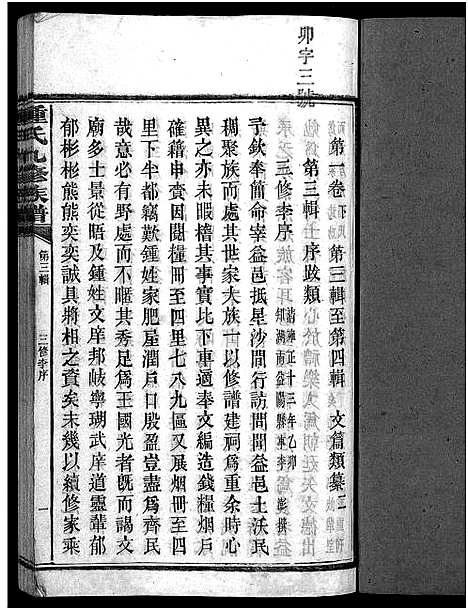 卯字三號
第一卷 第三輯至第四輯 文篇類纂二
第三輯 上 序跋類
三修李序
清雍正十三年乙卯
益陽縣宰李 澎撰
予欽奉簡命宰益邑抵星沙間行訪問聞益邑土沃民
稠聚族而處其世家大族一以修譜建祠為重余時心
異之亦未暇稽其事實比下車適奉文編造錢糧烟戶
確籍申賫因得披閱糧冊至四里七八九區展烟冊至四
里下半都竊歎鍾姓家肥屋潤戶口殷盈豈盡為齊民
哉意必有野處而不暱其秀足為王國光者便而謁文
廟多士景從晤及鍾姓文庠邦岐寧瑚武庠道靈輩郁
郁彬彬熊熊奕奕誠具將相之資矣未幾以續修家乘
鍾氏九修族譜
第三輯
三修李序
一